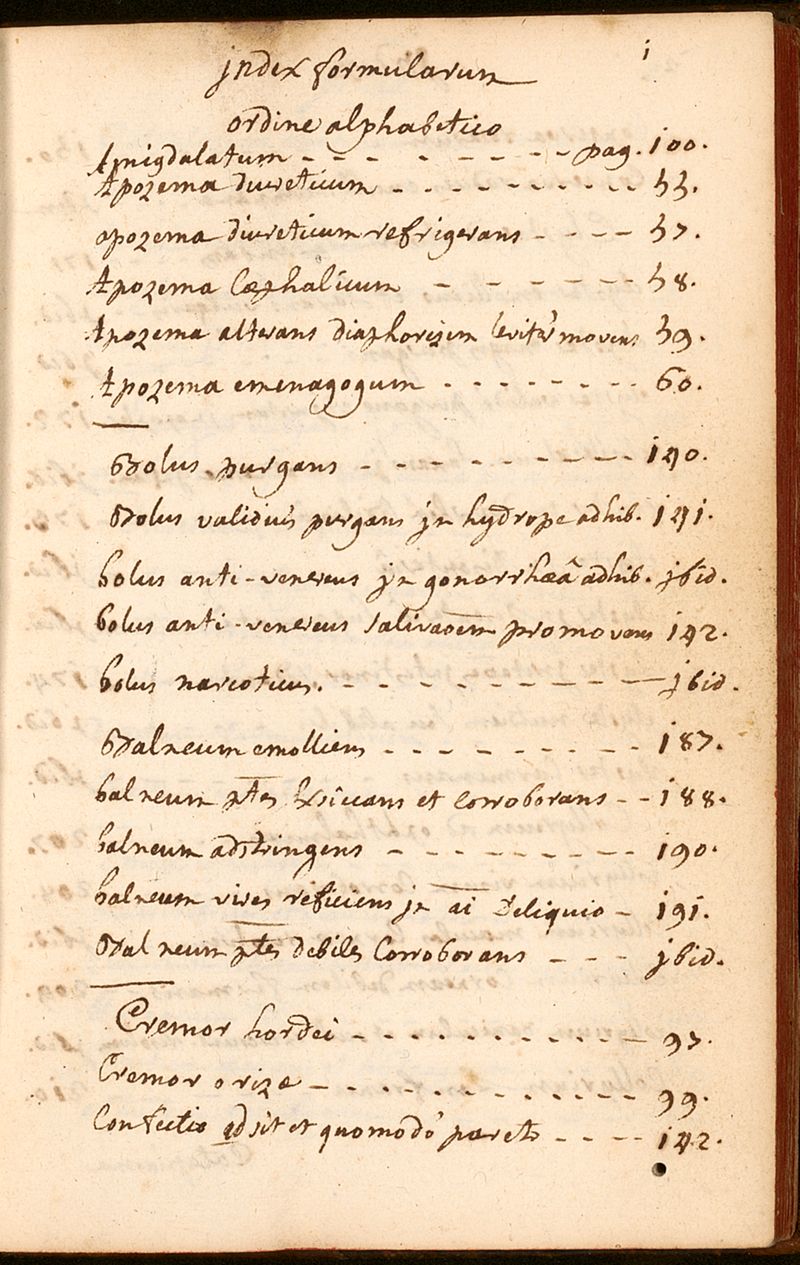 i
index formularum
ordine alphabetico
Amigdalatum - - - - - - - pag. 100.
Apozema diureticum - - - - - - - - - 55.
apozema diureticum refrigerans - - - - 57.
Apozema Cæphalicum - - - - - - - 58.
Apozema alterans diaphorezim leviter movens 59.
Apozema emenagogum - - - - - - - - 60.
Bolus purgans - - - - - - - - - - 140.
Bolus validius purgans jn hydrope adhib. 141.
bolus anti-venereus jn gonorrhæâ adhib. jbid.
bolus anti-venereus salivaõem promovens 142.
bolus narcoticus. - - - - - - - - - - jbid.
Balneum emolliens - - - - - - - - - 187.
balneum ptes Exsiccans et corroborans - - 188.
balneum adstringens - - - - - - - - 190.
balneum vires reficiens jn ai deliquio - 191.
Balneum ptes debiles Corroborans - - - jbid.
Cremor hordei - - - - - - - - - - - 97.
Cremor orizæ - - - - - - - - - - - 99.
Confectio qd sit et quomodo paretr - - - - 142.